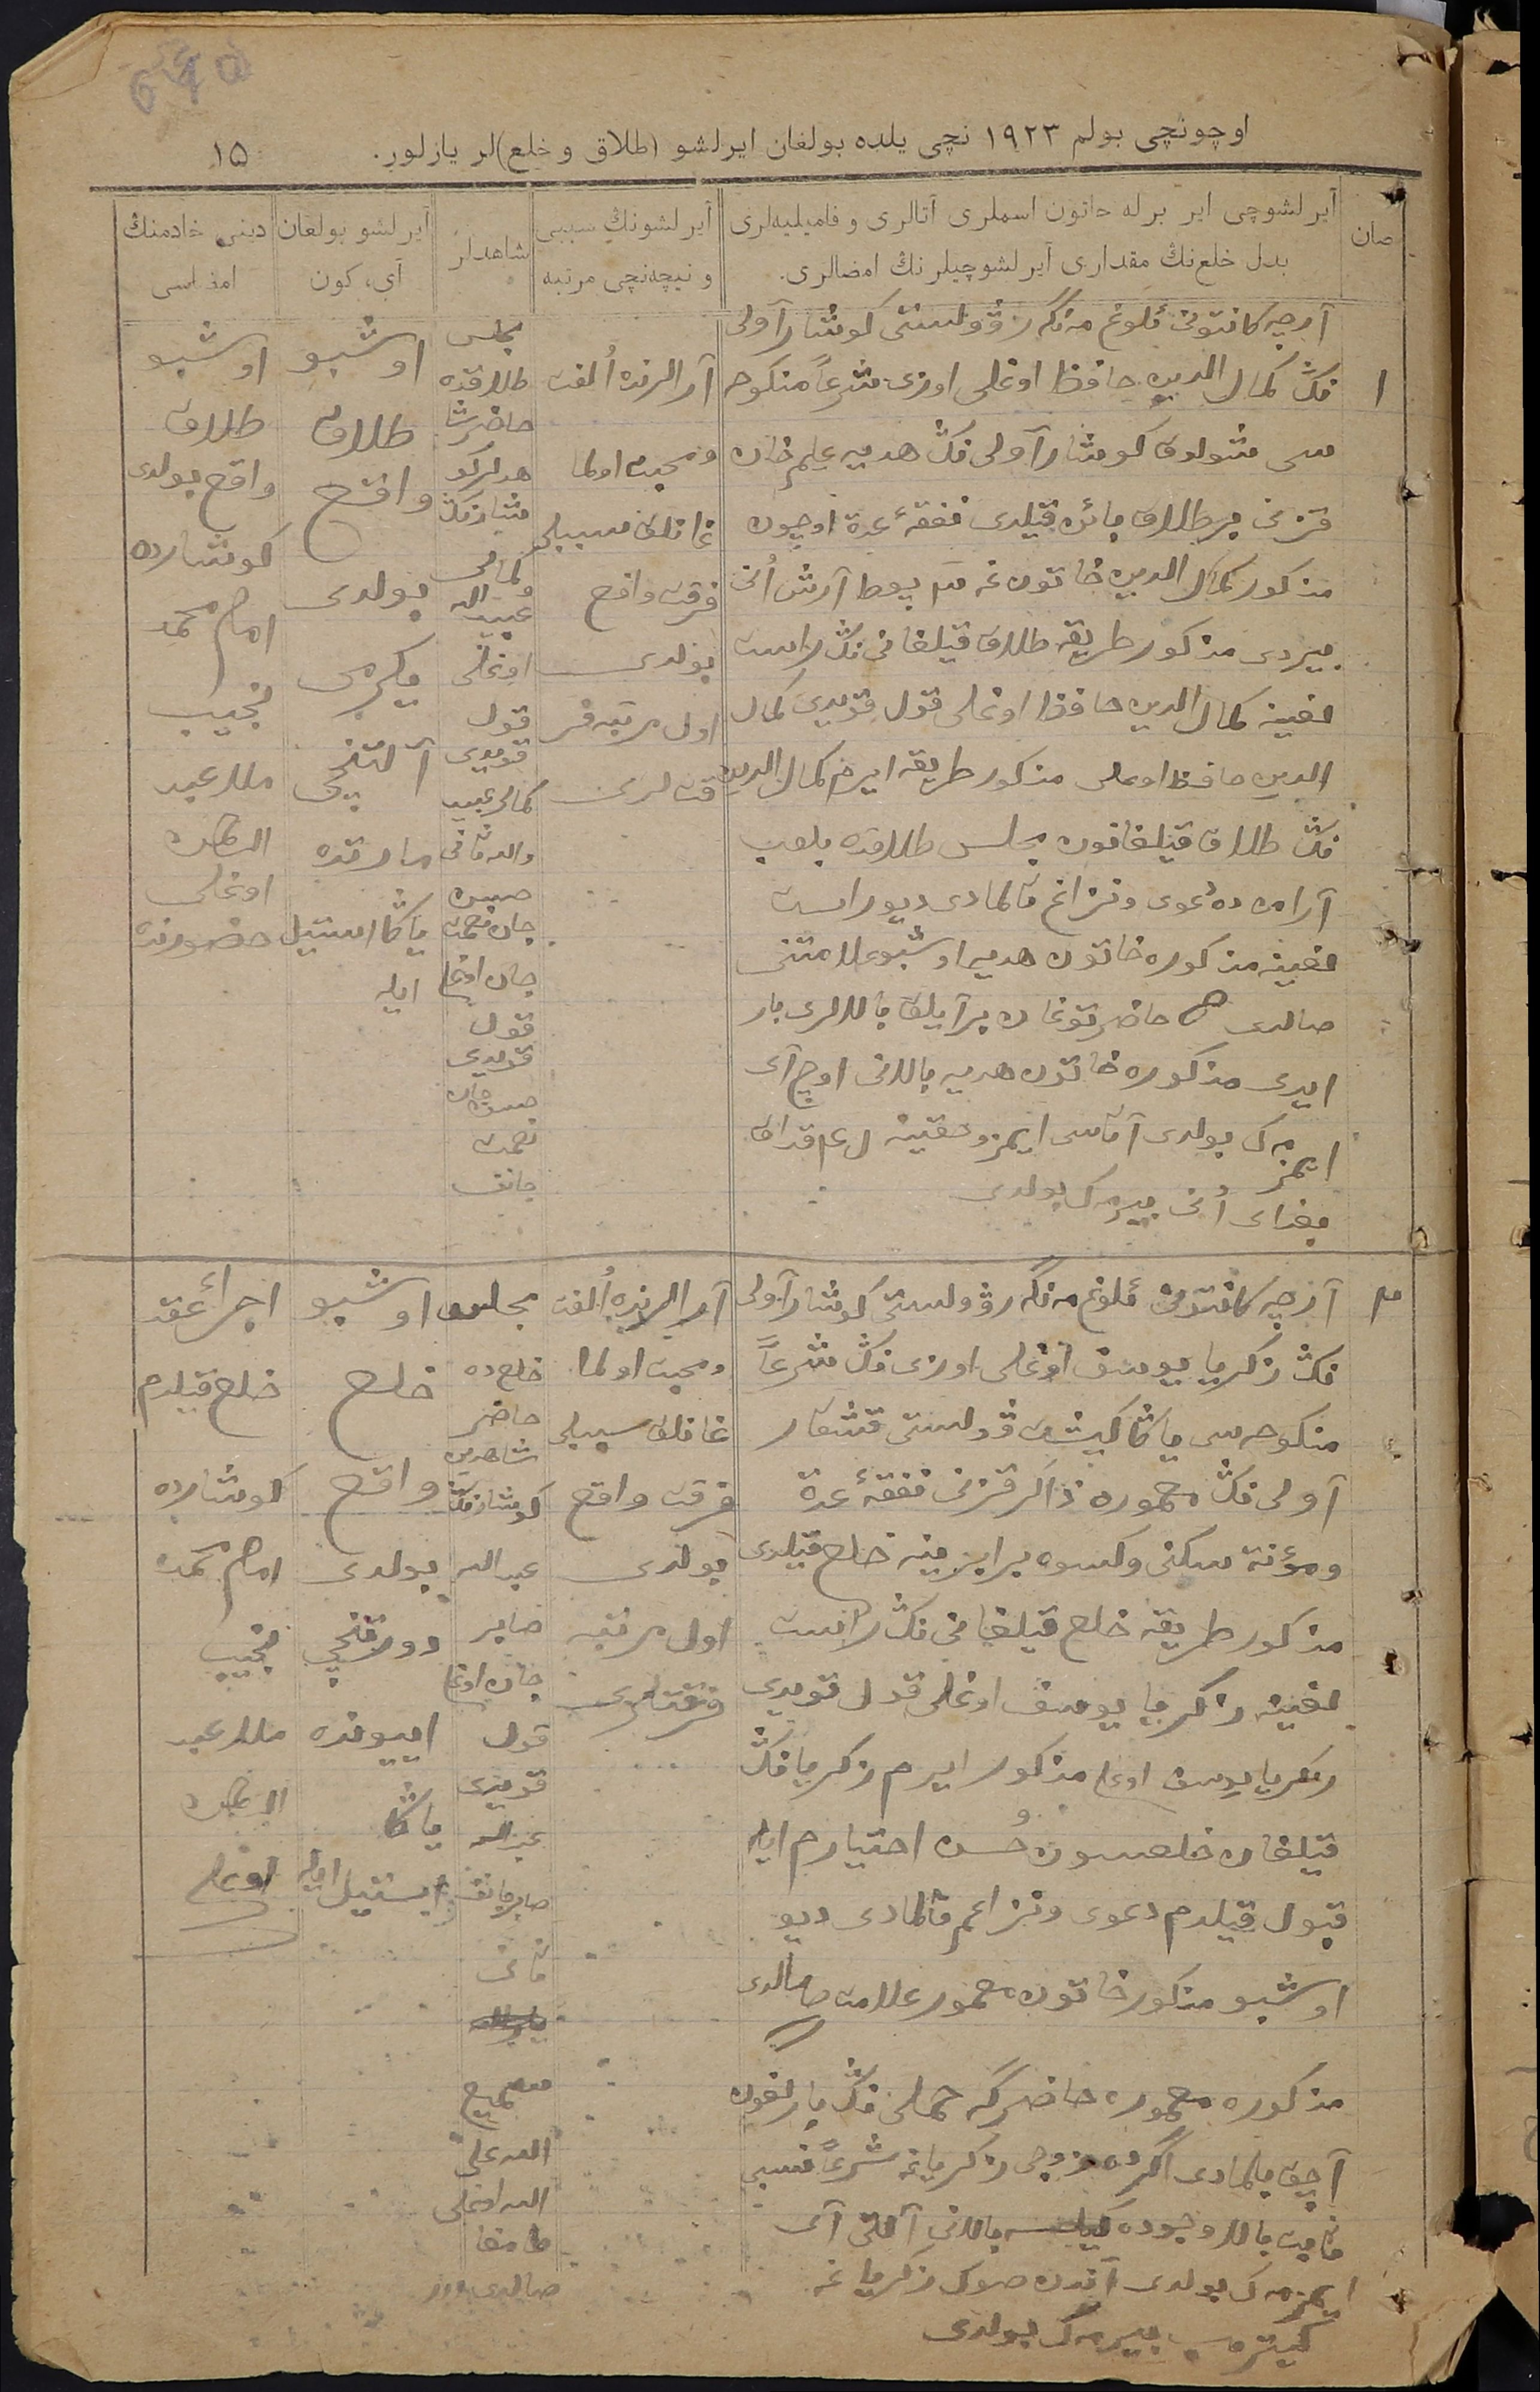 اوچونچی بولم ۱۹۲۳ نچی یلده بولغان ایرلشو (طلاق و خلع)لر یازلور.
۱۵
صان
آیرلشوچی ایر برله خاتون اسملری آتالری و فامیلیه‌لری
بدل خلع‌نڭ مقداری آیرلشوچیلرنڭ امضالری.
آیرلشونڭ سببی
و نیچه‌نچی مرتبه
شاهدلر
آیرلشو بولغان
آی، کون
دینی خادمنڭ
امضاسی
۱
آرچه کانتونی ئلوغ مڭگر ۋولستی کوشار آولی
نڭ کمال الدین حافظ اوغلی اوزی شرعاً منکوحه
سی شولوق کوشار آولی نڭ هدیه علم خان
قزنی بر طلاق بائن قیلدی نفقهٔ عدة اوچون
مذکور کمال الدین خاتون غه بوط آرش اُنی
بیردی مذکور طریقه طلاق قیلغانی نڭ راست
لغینه کمال الدین حافظ اوغلی قول قویدی کمال
الدین حافظ اوغلی مذکور طریقه ایرم کمال الدین
نڭ طلاق قیلغانون مجلس طلاقده بلوب
آرامزده دعوی ونزاغ قالمادی دیو راست
لغینه مذکوره خاتون هدیه اوشبو علامتنی
صالدی حاضر توغان بر آیلق بالالری بار
ایدی مذکوره خاتون هدیه بالانی اوچ آی
ایمزمک بولدی آتاسی ایمزو حقینه
بغدای اُنی بیرمک بولدی
آرالرنده اُلفت
ومحبت اولما
غانلق سببلی
فرقت واقع
بولدی
اول مرتبه فر
قت لری
مجلس
طلاقده
حاضر شا
هدلر کو
شارنڭ
کمالی
عبیدالله
اوغلی
قول
قویدی
جان اوغلی
قول
قویدی
نعمت
جانف
اوشبو
طلاق
واقع
بولدی
یگرمی
آلتنچی
مارتده
یاڭا استیل
ایله
اوشبو
طلاق
واقع بولدی
کوشارده
امام محمد
نجیب
ملا عبد
اوغلی
حضورنده
۲
آرچه کانتونی ئلوغ مڭگر ۋولستی کوشار آولی
نڭ زکریا یوسف اوغلی اوزی نڭ شرعاً
منکوحه‌سی یاڭا کیشت ۋولستی قشقار
آولی نڭ محموره ذاکر قزنی نفقهٔ عدة
ومؤنة سکنی وکسوه برابرینه خلع قیلدی
مذکور طریقه خلع قیلغانی نڭ راست
لغینه زکریا یوسف اوغلی قول قویدی
زکریا یوسف اوغلی مذکور ایرم زکریا نڭ
قیلغان خلعسون حُسن اختیارم ایله
قبول قیلدم دعوی ونزاعم قالمادی دیو
اوشبو مذکور خاتون محمور علامت صالدی
مذکوره محموره حاضرگه حملی نڭ بارلغون
آچق بلمادی اگرده زوجی زکریا غه شرعاً نسبی
ثابت بالا وجوده کیلسه بالانی آلتی آی
ایمزمک بولدی آندن صوڭ زکریا غه
کیتروب بیرمک بولدی
آرالرنده اُلفت
ومحبت اولما
غانلق سببلی
فرقت واقع
بولدی
اول مرتبه
فرقتلری
مجلس
خلع ده
حاضر
شاهدین
کوشارنڭ
عبدالله
صابر
جان اوغلی
قول
قویدی
عبدالله
صابرجانف
ثانی
سمیع
الله علی
الله اوغلی
طامغا
صالدی
اوشبو
خلع
واقع
بولدی
دورتنچی
اییونده
یاڭا
ایستیل ایله
اجراء عقد
خلع قیلدم
کوشارده
امام محمد
نجیب
ملا عبد
اوغلی